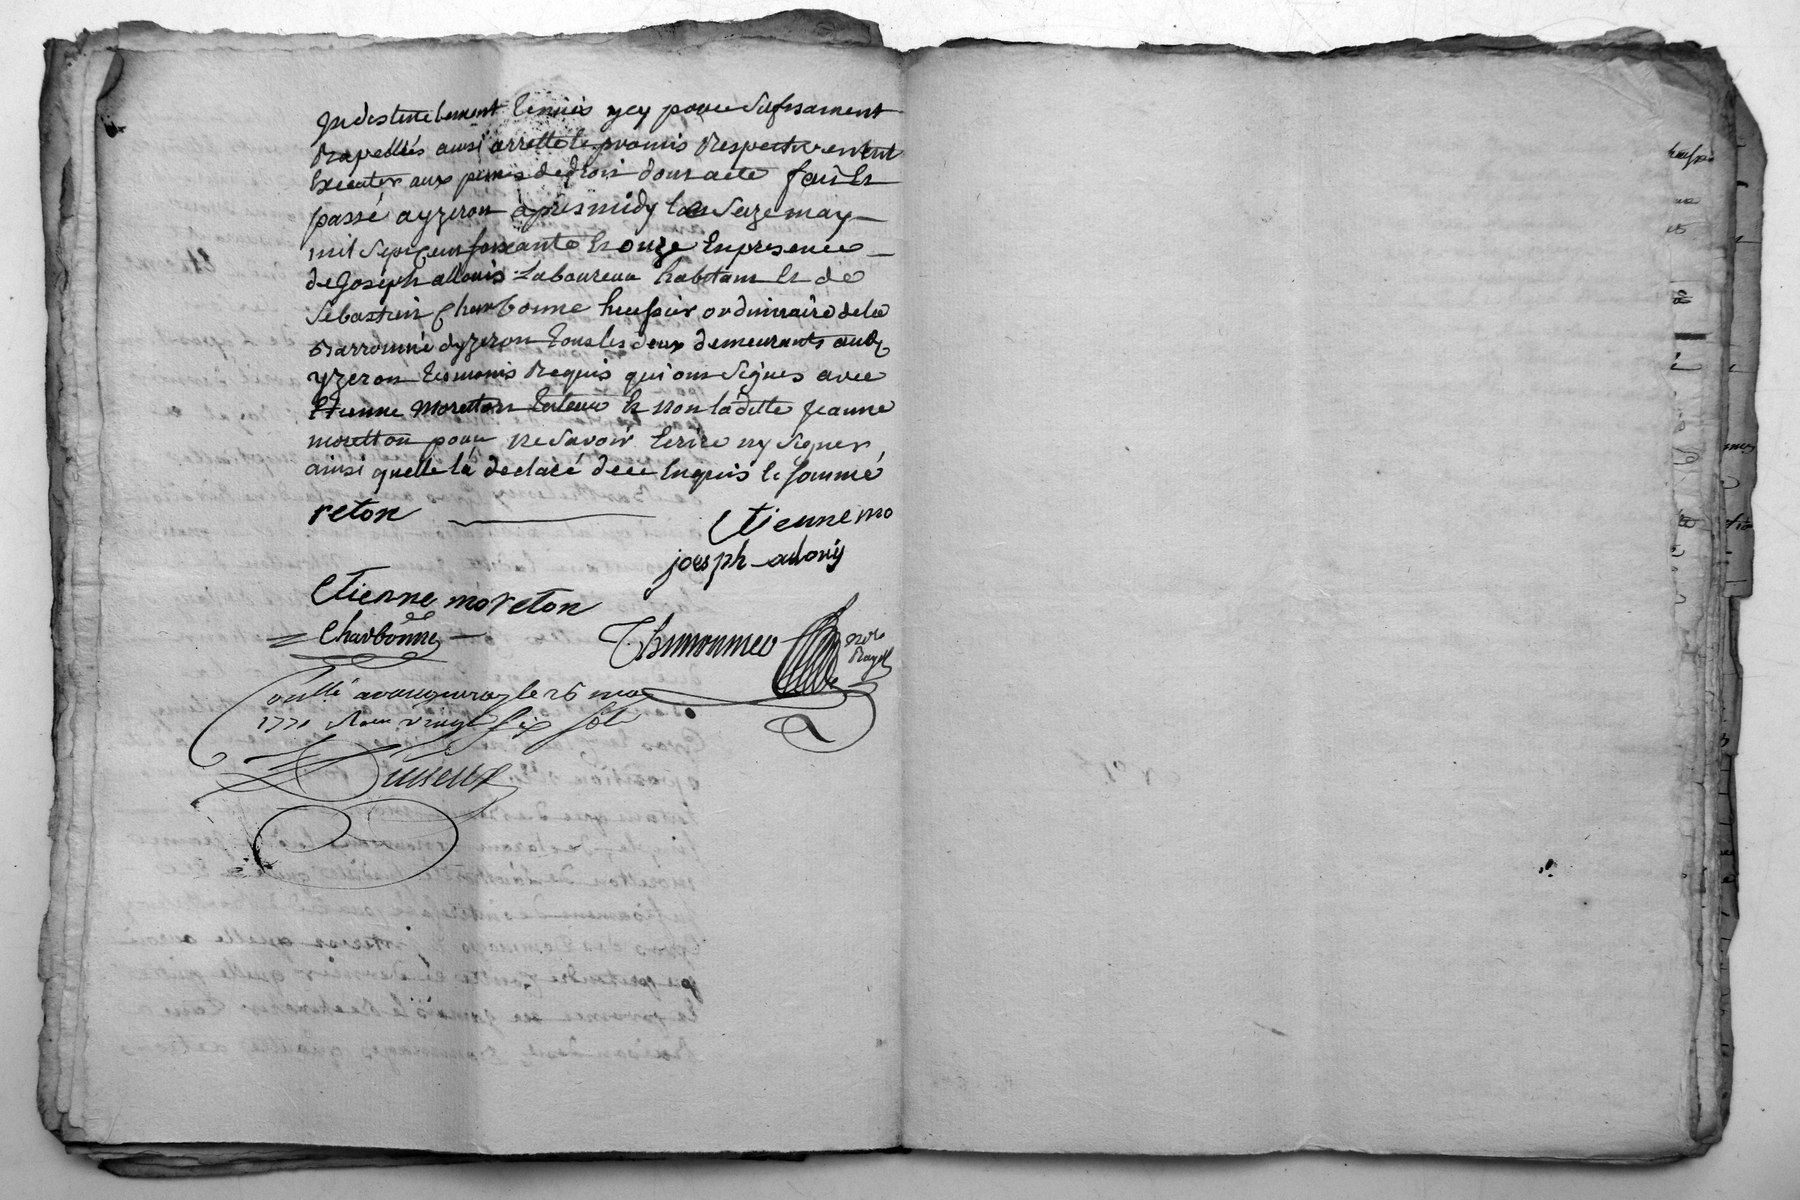 rapellés ainsi arretté et promis Respectivement
Executer aux peines de droit dont acte fait et
passé a yzeron apres midy le seize may
mil sept cent soixante et onze En presence
de Joseph allouis Laboureur habitant et de
Sebastien Charbonne huissier ordinnaire de la
Barronnie dyzeron tous les deux demeurants aud
yzeron temoins Requis qui ont signés avec
Etienne moretton et non laditte jeanne
moretton pour ne savoir Ecrire ny signer
ainsi quelle la declaré de ce Enquis et sommé
reton
Etienne mo
joesph alovis
Etienne moreton
Charbonne
nore
Royal
le 26 may
1771 Reçu vingt six sols